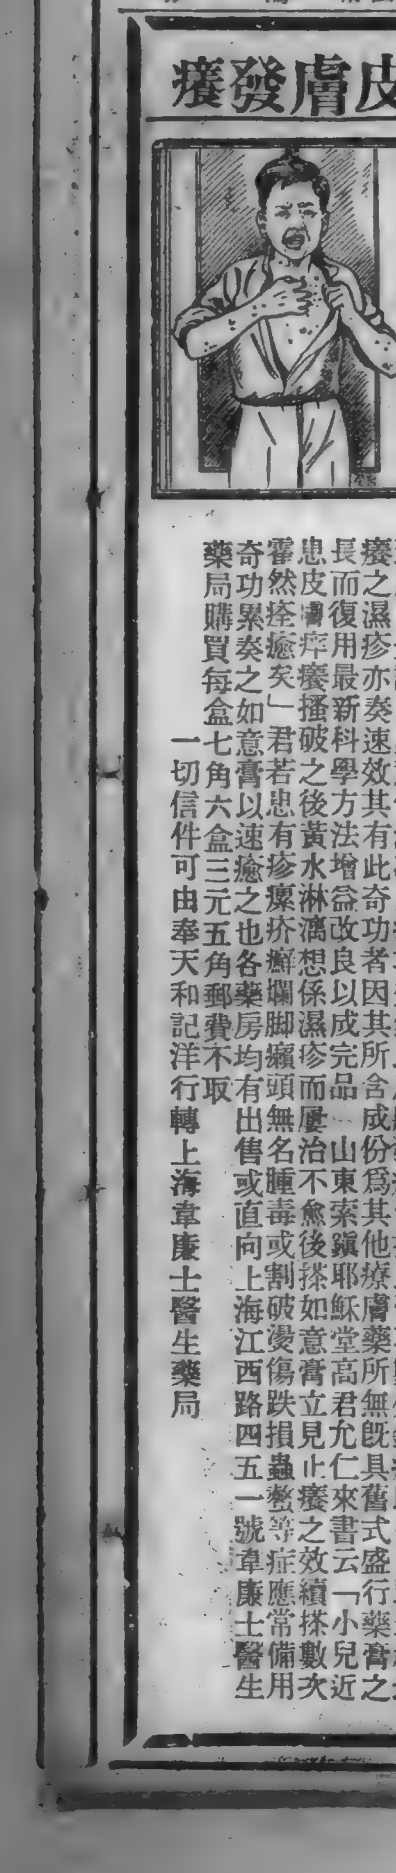 皮膚發癢
癢之濕疹亦奏速效其有此奇功者因其所含成份爲其他療膚藥所無既具舊式盛行藥膏之
長而復用最新科學方法增益改良以成完品 山東索鎭耶穌堂高君允仁來書云「小兒近
患皮膚痒癢搔破之後黃水淋漓想係濕疹而屢治不愈後搽如意膏立見止癢之效續搽數次
霍然痊癒矣」君若患有疹瘰疥癬爛脚癩頭無名腫毒或割破燙傷跌損蟲螫等症應常備用
奇功累奏之如意膏以速癒之也各藥房均有出售或直向上海江西路四五一號韋廉士醫生
藥局購買每盒七角六盒三元五角郵費不取
一切信件可由奉天和記洋行轉上海韋廉士醫生藥局